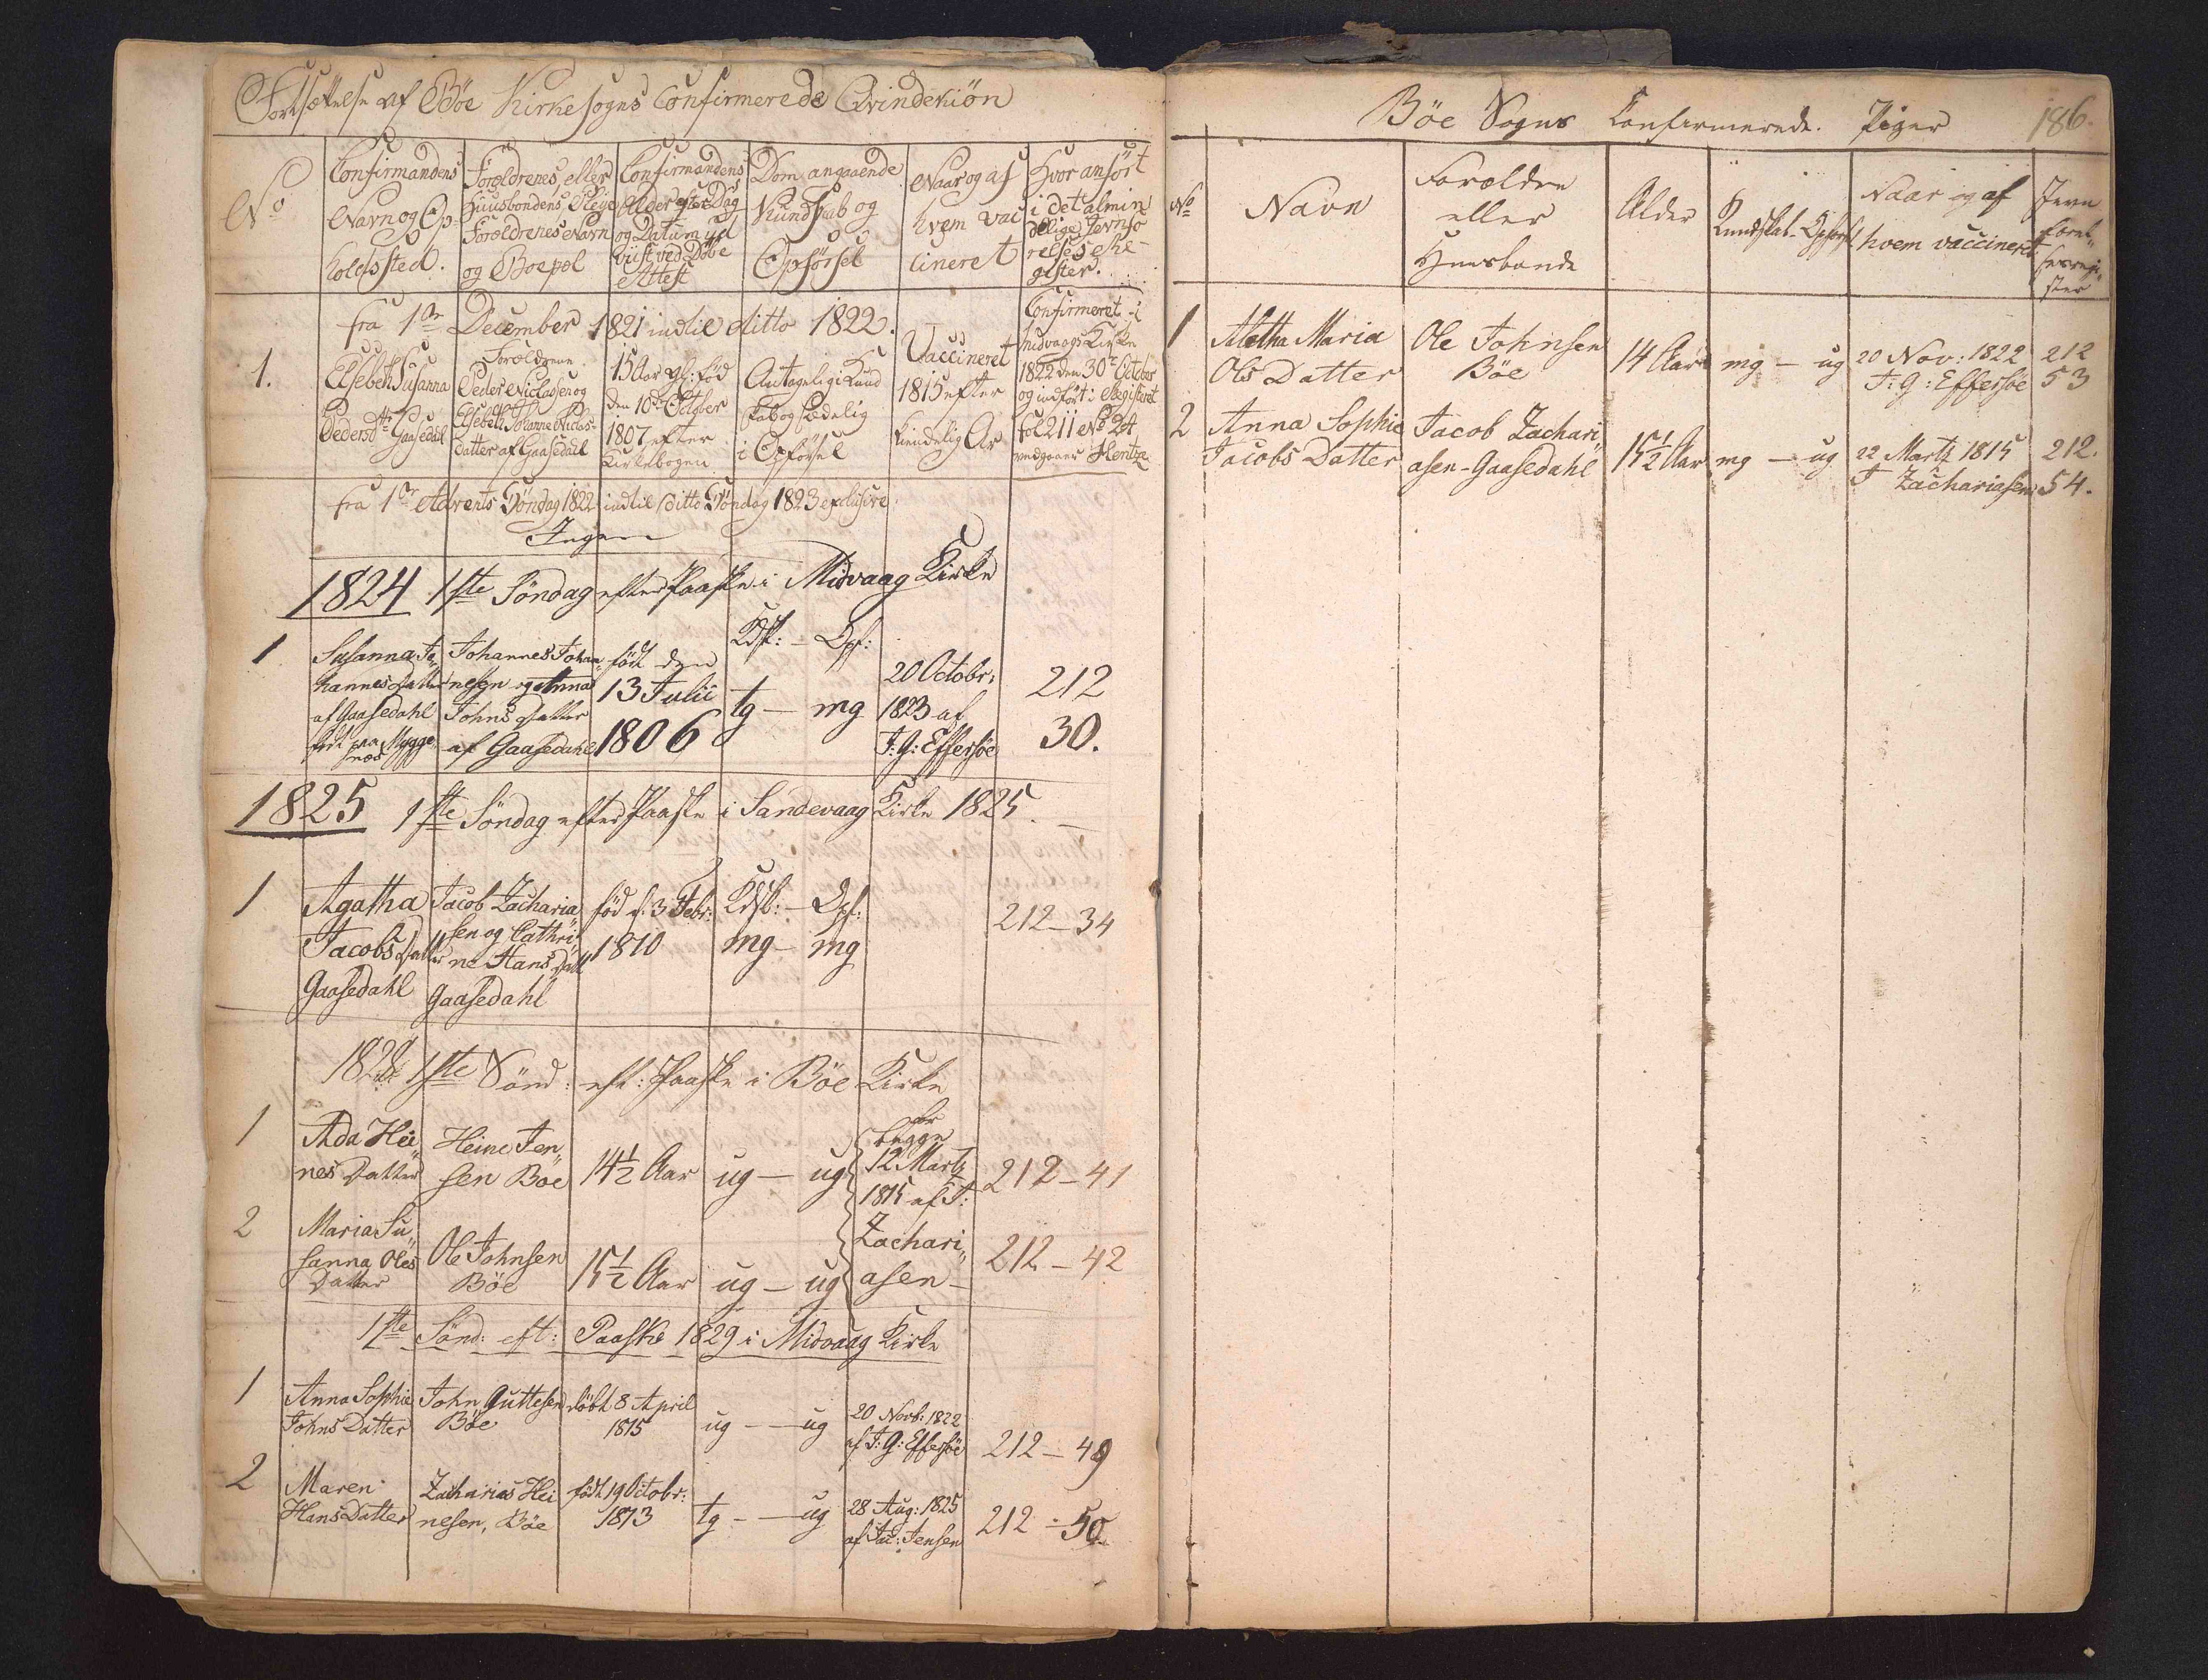 Fortsættelse af Bøe Kirkesogns Confirmerede Qvindekiøn
No
Confirmandens
Navn og Op-
holdssted.
Forældrenes, eller
Huusbondens Pleye
Forældrenes Navn
og Boepæl
Confirmandens
Alder efter Dag
og Datum ud
viist ved Døbe
Attest
Dom angaaende
Kundskab og
Opførsel
Naar og af
hvem vac
cineret
Hvor anført
i det almin
delige Jevnfø
relses Re-
gister.
fra 1ste December 1821 indtil ditto 1822.
1.
Elsebeth Susanna
Pedersd. Gaasedal
Forældrene
Peder Niclasen og
Elsebeth Johanne Niclas-
datter af Gaasedal
15 Aar gl: fød
den 10de October
1807 efter
Kirkebogen
Antagelig i Kund
skab og sædelig
i Opførsel
Vaccineret
1815 efter
kiendelig Ar
Confirmeret i
Midvaags Kirke
1822 den 30te October
og indført i Registeret
Fol 211 No 24
vedgaaer Hentze
fra 1ste Advents Søndag 1822 indtil ditto Søndag 1823 exclusive.
Ingen
1824 1ste Søndag efter Paaske i Midvaag Kirke
1
Susanna Jo„
hannes Datter
af Gaasedahl
født paa Mygge
næs
Johannes Johan„
nesen og Anna
Johns Datter
af Gaasedahl
født den
13 Julii
1806
Kdsk: – Opf:
tg – mg
20 Octobr:
1823 af
J: G: Effersøe
212
30.
1825 1ste Søndag efter Paaske i Sandevaag Kirke 1825.
1
Agatha
Jacobs Datter
Gaasedahl
Jacob Zacharia„
sen og Cathri„
ne Hans Datt
Gaasedahl
fød d. 3 Febr:
1810
Kdsk: – Opf:
mg – mg
212 – 34
1828 1ste Sönd: eft: Paaske i Bøe Kirke
1
Ada Hei„
nes Datter
Heine Jen„
sen Bøe
14½ Aar
ug – ug
for
begge
12 Martz
1815 af J:
Zachari„
asen –
212 – 41
2
Maria Su„
sanna Oles
Datter
Ole Johnsen
Böe
15½ Aar
ug – ug
212 – 42
1ste Sönd: eft: Paaske 1829 i Midvaag Kirke
1
Anna Sophie
Johns Datter
John Guttesen
Böe
döbt 8 April
1815
ug – – ug
20 Novb: 1822
af J: G: Effersöe
212 – 49
2
Maren
Hans Datter
Zacharias Hei
nesen, Böe
födt 19 Octobr:
1813
tg – – ug
28 Aug: 1825
af Jac: Jensen
212 – 50
Böe Sogns Confirmerede Piger
186.
No
Navn
Forældre
eller
Huusbonde
Alder
Kundskab – Opförsel
Naar og af
hvem vaccineret
Jevn
förel„
sesregi„
ster
1
Aletha Maria
Ols Datter
Ole Johnsen
Böe
14 Aar
mg – ug
20 Nov: 1822
J: G: Effersöe
212
53
2
Anna Sophie
Jacobs Datter
Jacob Zachari„
asen – Gaasedahl
15½ Aar
mg – ug
22 Martz 1815
J Zachariasen
212.
54.